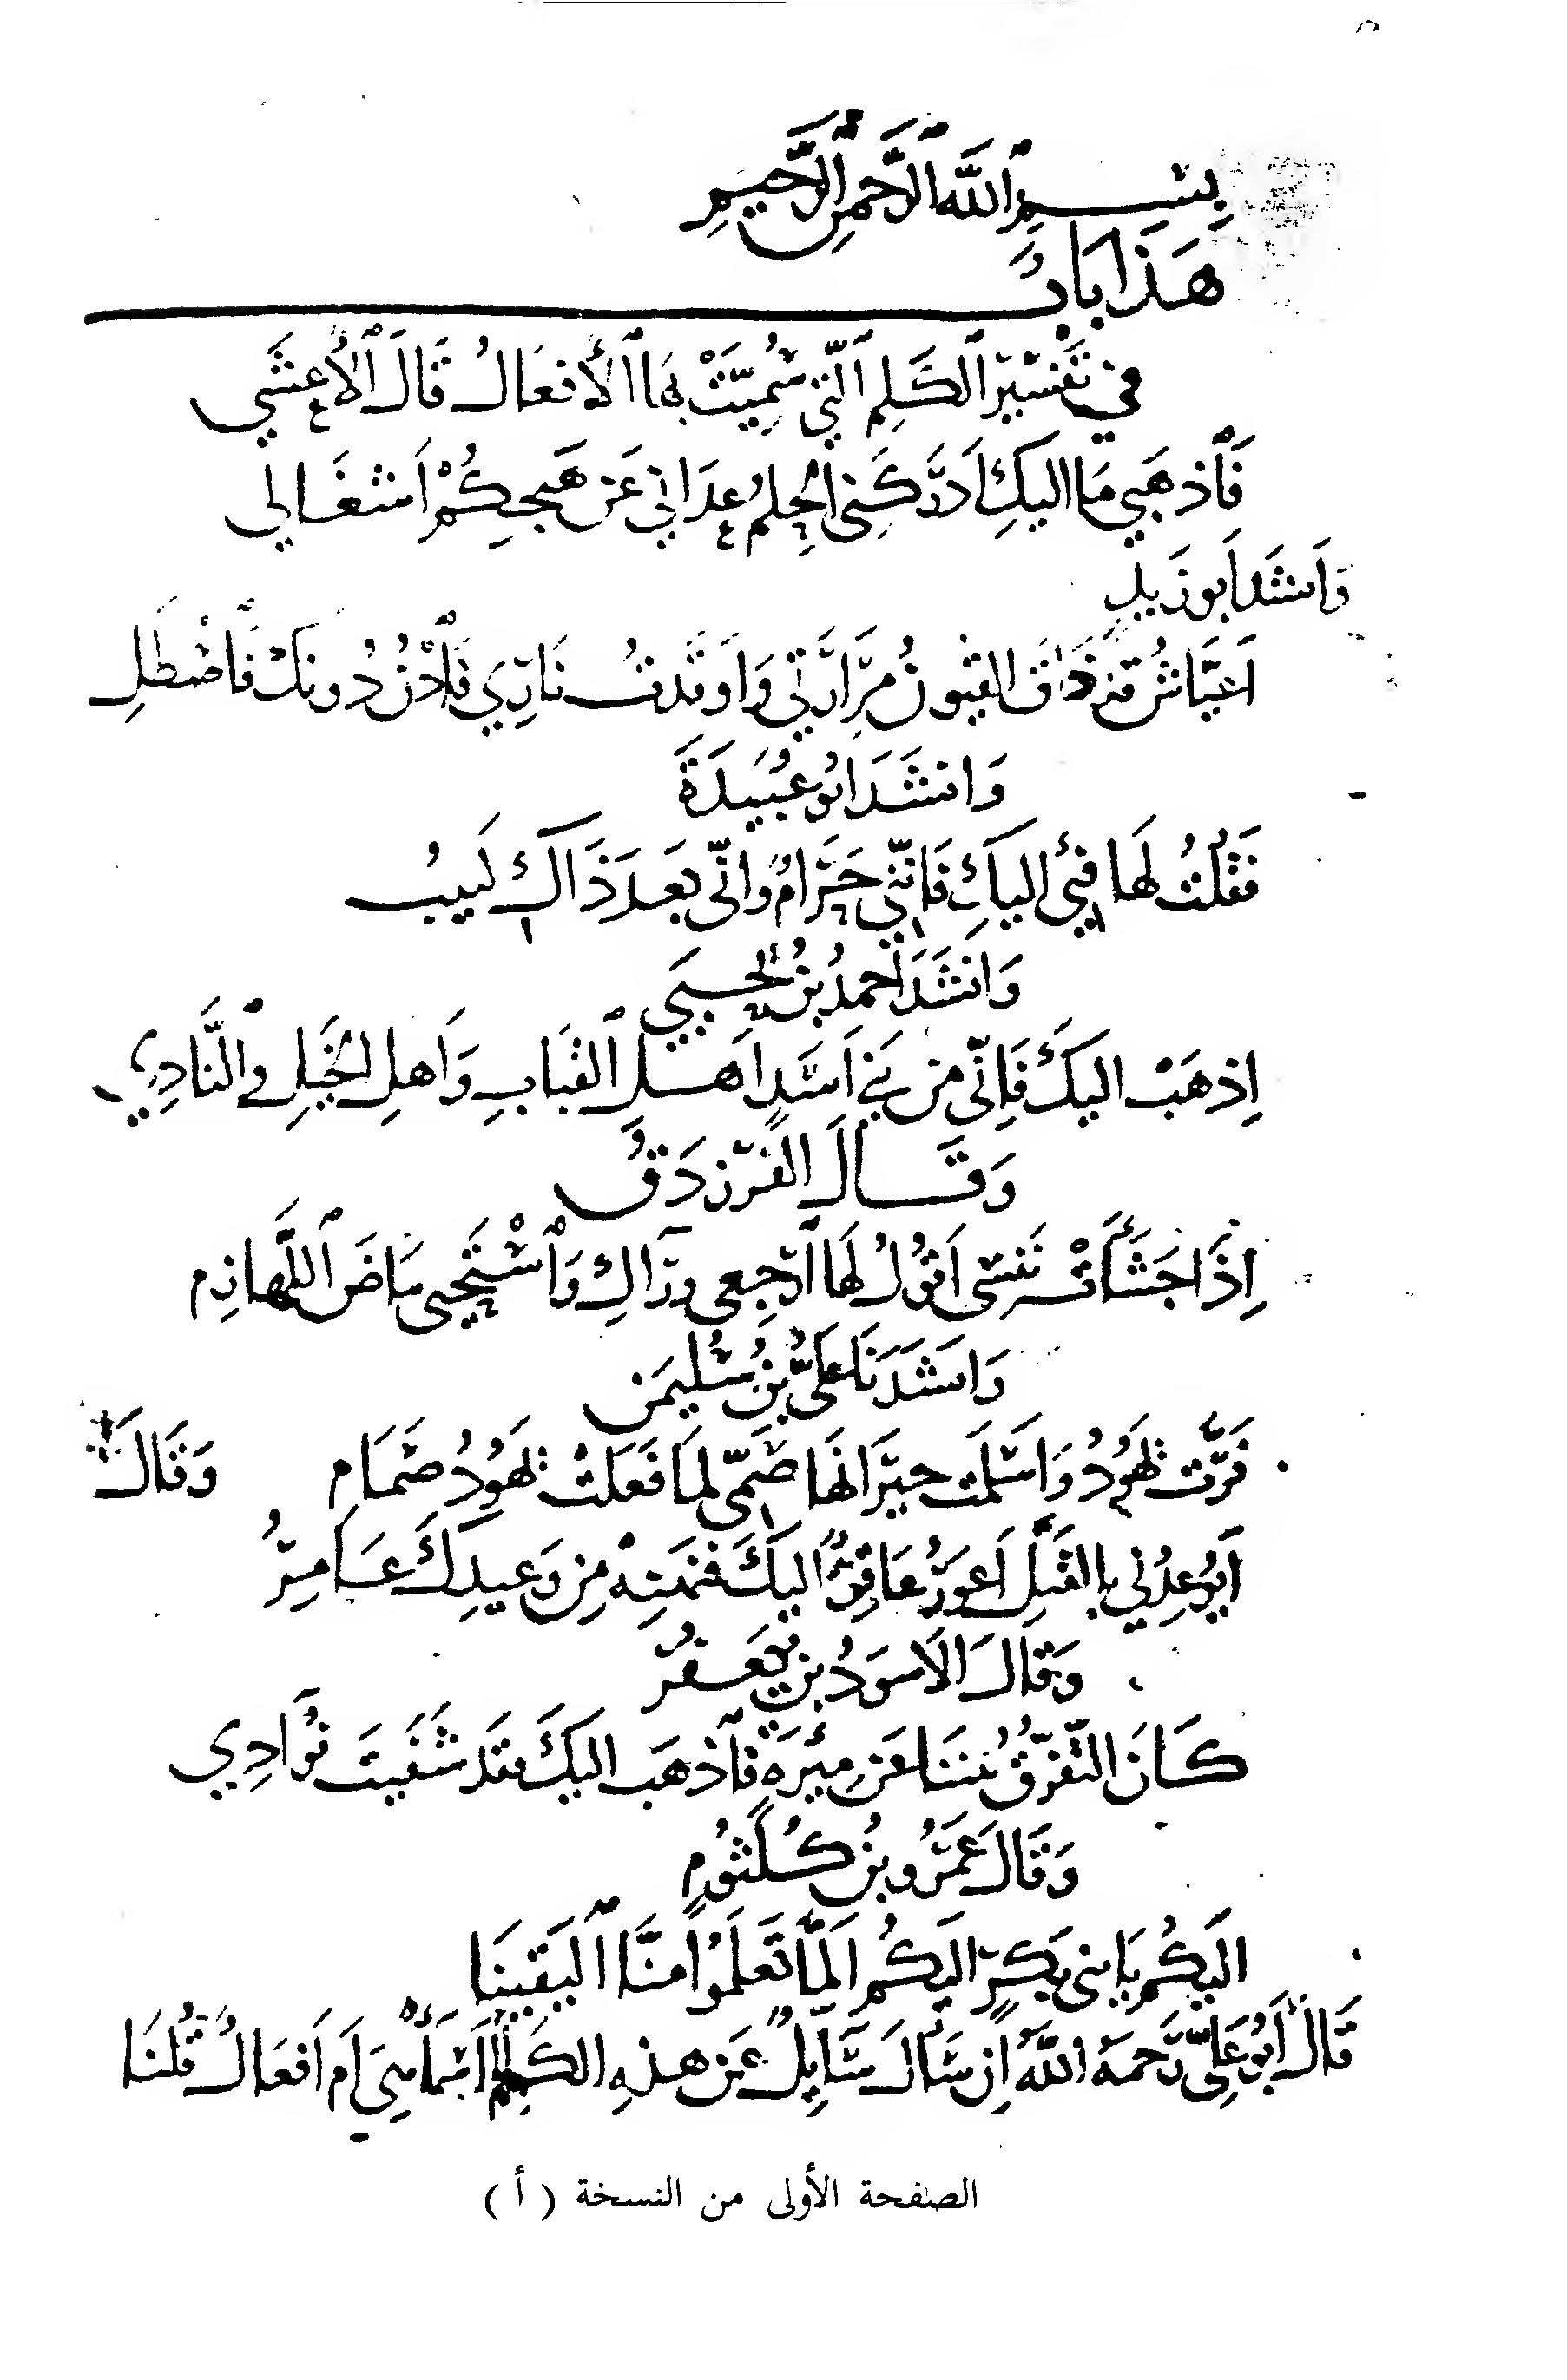 بِسْمِ ٱللَّهِ ٱلرَّحْمَٰنِ ٱلرَّحِيمِ
هَذَا بَابُ
في تَفْسِيرِ ٱلكَلِمِ ٱلَّتِي سُمِّيَتْ بِهَا ٱلأَفعَالُ قَالَ ٱلأَعشَى
فَٱذهَبِي مَا اليكِ اَدرَكَنى الحِلمُ عدَانِي عَن هَيجِكُمْ اَشغَالِي
وَاَنشَدَ اَبو زَيدٍ
اَعَيَّاشُ قَد ذَاقَ القيُونُ مَرَارَتِي وَاَوقَدتُ نَارِي فَٱدْنُ دُونَكَ فَٱصْطَلِ
وَانشَدَ ابُو عُبَيدَةَ
فَقُلْتُ لَهَا فِيْئ اليكِ فَانَّنِي حَرَامٌ وَانّى بَعدَ ذَاكَ لَبِيبُ
وَانشَدَ اَحمدُ بنُ يحيَى
اِذهَبْ اليكَ فَاِنّى من بَنِي اَسَدٍ اَهلِ ٱلقبَابِ وَاَهلِ الخَيلِ وٱلنَّادِي
وَقَالَ الفَرَزدَقُ
اِذَا جَشَأَتْ نَفسى اَقُولُ لَهَا ٱرجِعى ورَآكِ وَٱسْتَحيى بيَاضَ ٱللَّهازِم
وَانشَدَنَا عَلىُّ بنُ سُليمَن
فَرَّت يَهُودُ وَاَسلَمَت جيرَانَهَا صَمّى لِمَا فَعَلَتْ يَهُودُ صَمَامِ وَقَالَ
اَيُوعِدُنِي بالقَتلِ اَعوَرُ عَاقِرٌ اليكَ فنهَتِهْ مِن وَعيدِكَ عَامِرُ
وَقَالَ الاَسوَدُ بن يَعفُرَ
كَانَ التَّفَرُّقُ بَينَنَا عَن مِئرَةٍ فَٱذهَب اليكَ فقَد شَفَيتَ فُؤَادِي
وَقَالَ عَمرُو بنُ كُلثُومٍ
اليَكُم يَا بنى بَكرٍ اليَكُم اَلَمَّا تَعلَمُوا مِنَّا ٱليَقِينَا
قَالَ اَبُو عَلِىٍّ رَحمَهُ اللَّهُ اِن سَأَلَ سَآئِلٌ عَن هذِهِ الكَلِمِ اَسْمَآءٌ هِيَ اَم اَفعَالٌ قُلنَا
الصفحة الأولى من النسخة ( أ )